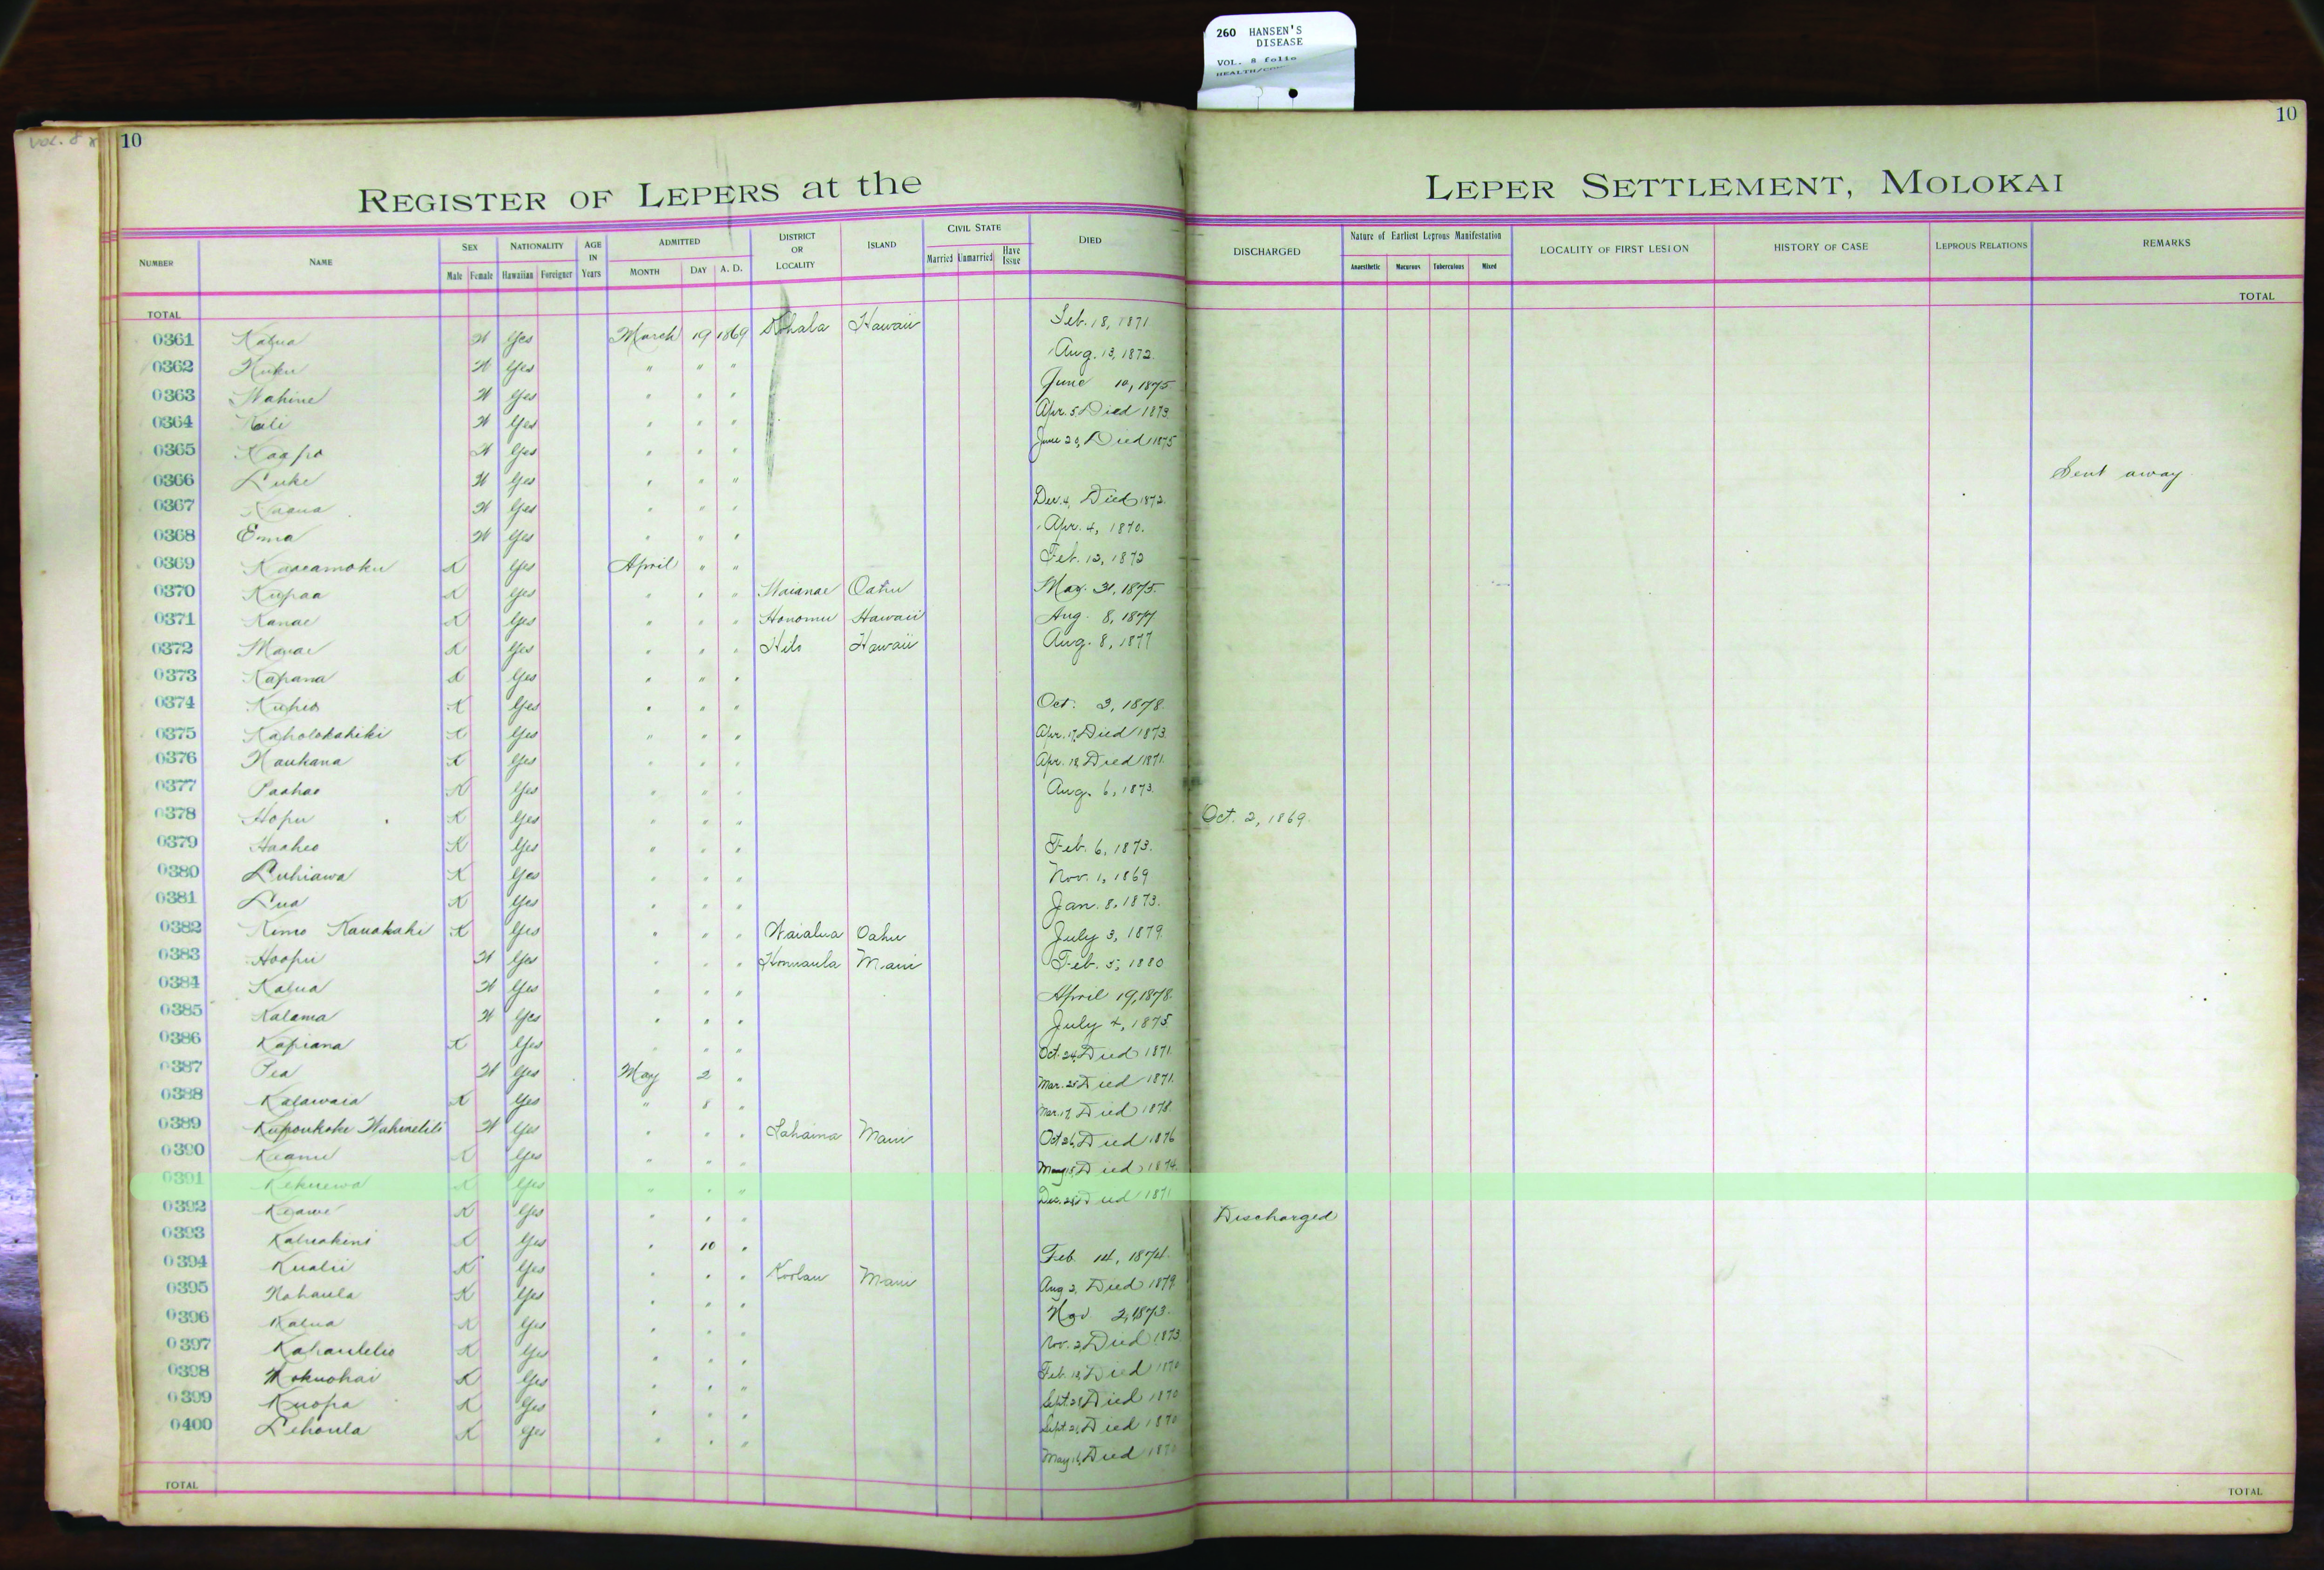 260 HANSEN'S
DISEASE
VOL. 8 folio
Vol. 8
10
10
REGISTER OF LEPERS at the LEPER SETTLEMENT, MOLOKAI
NUMBER NAME SEX NATIONALITY AGE IN Years ADMITTED DISTRICT OR LOCALITY ISLAND CIVIL STATE DIED DISCHARGED Nature of Earliest Leprous Manifestation LOCALITY OF FIRST LESION HISTORY OF CASE LEPROUS RELATIONS REMARKS
Male Female Hawaiian Foreigner MONTH DAY A. D. Married Unmarried Have Issue Anaesthetic Macurous Tuberculous Mixed
TOTAL TOTAL
0361 Kalua W Yes March 19 1869 Kohala Hawaii Feb. 18, 1871
0362 Kuku W Yes " " " Aug. 13, 1872.
0363 Wahine W Yes " " " June 10, 1875
0364 Kali W Yes " " " Apr. 5 Died 1873.
0365 Kaapo W Yes " " " June 29, Died 1875
0366 Luke W Yes " " " Sent away
0367 W Yes " " " Dec. 4, Died 1872.
0368 Emma W Yes " " " Apr. 4, 1870.
0369 Kaaeamoku K Yes April " " Feb. 12, 1872
0370 Kupaa K Yes " " " Waianae Oahu May 31, 1875.
0371 Kanae K Yes " " " Honomu Hawaii Aug. 8, 1877
0372 K Yes " " " Hilo Hawaii Aug. 8, 1877
0373 Kapana K Yes " " "
0374 Kuheo K Yes " " " Oct. 3, 1878.
0375 Kaholokahiki K Yes " " " Apr. 17, Died 1873.
0376 Naukana K Yes " " " Apr. 18 Died 1871.
0377 Paahao K Yes " " " Aug. 6, 1873.
0378 Hopu K Yes " " " Oct. 2, 1869.
0379 Haaheo K Yes " " " Feb. 6, 1873.
0380 Luhiawa K Yes " " " Nov. 1, 1869
0381 Lua K Yes " " " Jan. 8, 1873.
0382 Kimo Kauakahi K Yes " " " Waialua Oahu July 3, 1879.
0383 Hoopii W Yes " " " Honuaula Maui Feb. 5, 1880
0384 Kalua W Yes " " " April 19, 1878.
0385 Kalama W Yes " " " July 4, 1875.
0386 Kapiana K Yes " " " Oct. 24, Died 1871.
0387 Pea W Yes May 2 " Mar. 25 Died 1871.
0388 Kalawaia K Yes " 8 " Mar. 17, Died 1878.
0389 Kupoukoke W Yes " " " Lahaina Maui Oct 26, Died 1876
0390 Keanu K Yes " " " May 18, Died 1874.
0391 Kekuewa K Yes " " " Dec. Died 1871
0392 Keawe K Yes " " " Discharged
0393 Kaluakini K Yes " 10 " Feb. 14, 1874.
0394 Kualii K Yes " " " Koolau Maui Aug 2, Died 1879.
0395 Nahaula K Yes " " " Nov 2, 1873.
0396 Kalua K Yes " " " Nov. 2, Died 1873.
0397 Kahaulelio K Yes " " " Feb. 18, Died 1870
0398 Mokuohai K Yes " " " Sept. 28 Died 1870
0399 Kuopa K Yes " " " Sept. 21, Died 1870
0400 Lehoula K Yes " " " May 16, Died 1870
TOTAL TOTAL